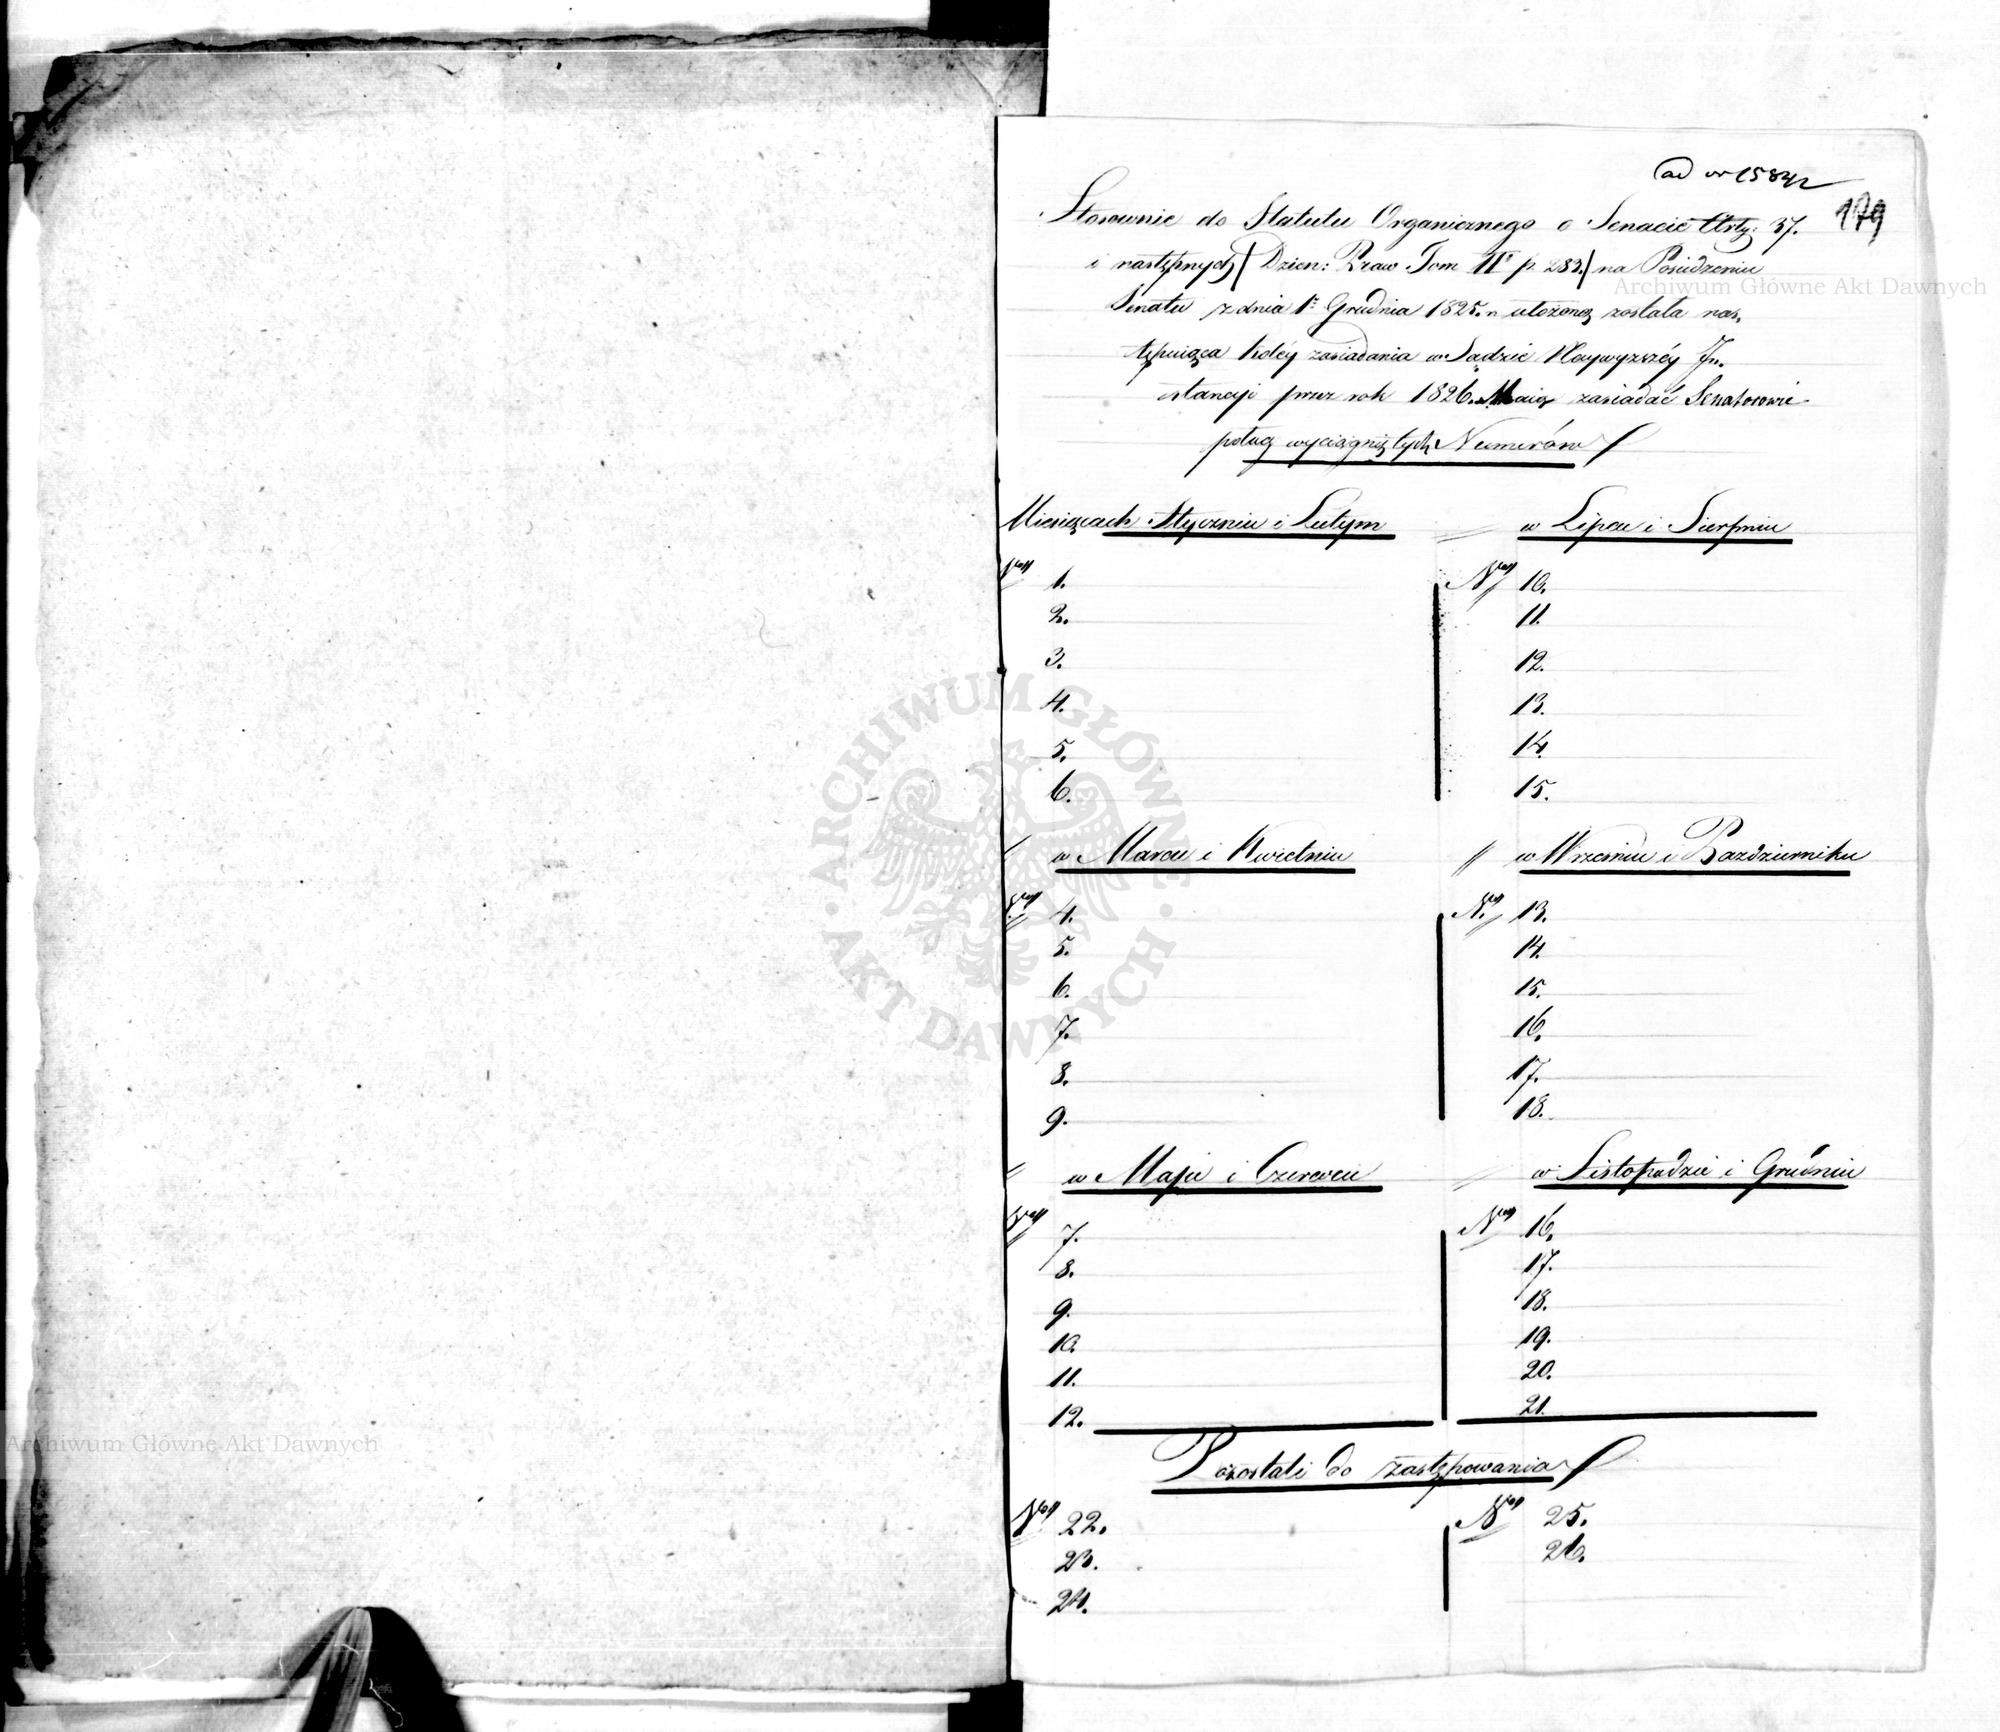 ad nr 15842
179
Stosownie do Statutu Organicznego o Senacie Arty: 37.
i następnych/ Dzien: Praw Tom II p. 283./ na Posiedzeniu
Senatu z dnia 1° Grudnia 1825. r ułożoną została nas.
tępuiąca koléy zasiadania w Sądzie Naywyzszéy In.
stancyi przez rok 1826. Maią zasiadać Senatorowie
podług wyciągniętych Numerów
Miesiącach Styczniu i Lutym
1.
2.
3.
4.
5.
6.
w Marcu i Kwietniu
4.
5.
6.
7.
8.
9.
w Maju i Czerwcu
7.
8.
9.
10.
11.
12.
w Lipcu i Sierpniu
Nr 10.
11.
12.
13.
14.
15.
w Wrzesniu i Pazdzierniku
Nr 13.
14.
15.
16.
17.
18.
w Listopadzie i Grudniu
Nr 16.
17.
18.
19.
20.
21.
Pozostali do zastępowania
Nr 22.
23.
24.
Nr 25.
26.
Archiwum Główne Akt Dawnych
Archiwum Główne Akt Dawnych
ARCHIWUM GŁÓWNE
AKT DAWNYCH